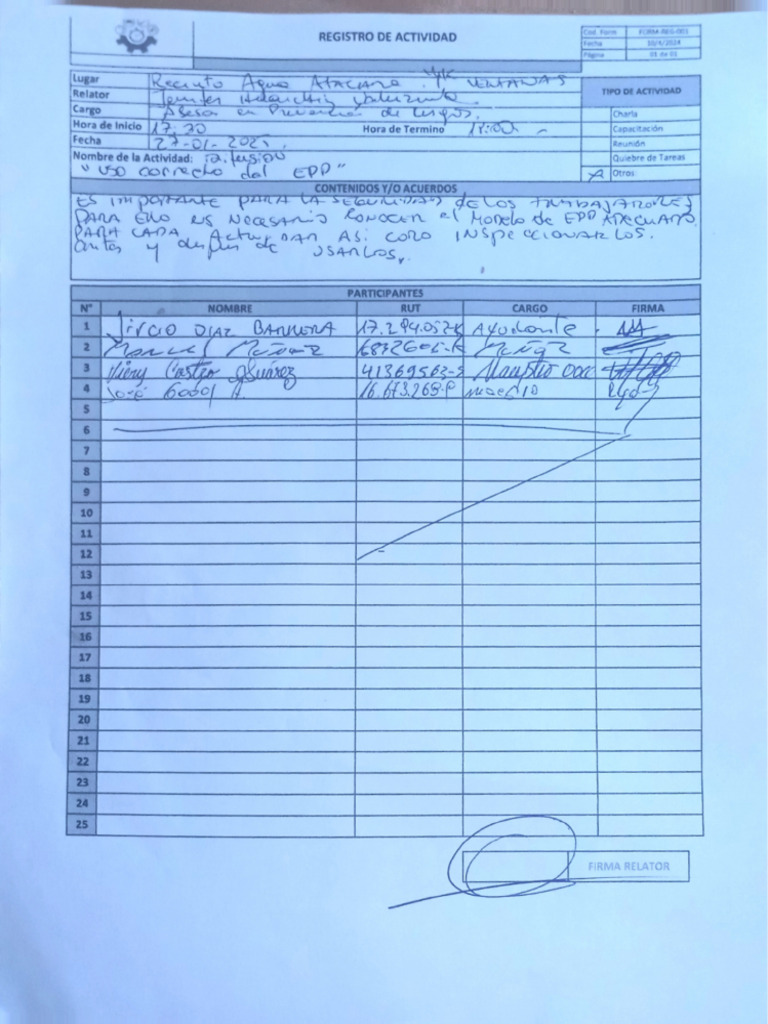 REGISTRO DE ACTIVIDAD
Cod. Form FORM-REG-001
Fecha 10/4/2024
Página 01 de 01
Lugar Recinto Agua Atacama. VENTANAS
Relator
Cargo Asesor en Prevención de riesgos.
Hora de Inicio 17:30 Hora de Termino 18:00
Fecha 27-01-2025
Nombre de la Actividad: Difusión
"USO correcto del EPP"
TIPO DE ACTIVIDAD
Charla
Capacitación
Reunión
Quiebre de Tareas
X Otros
CONTENIDOS Y/O ACUERDOS
ES IMPORTANTE PARA LA SEGURIDAD DE LOS TRABAJADORES
PARA ELLO ES NECESARIO CONOCER el MODELO de EPP ADECUADO
PARA CADA ACTIVIDAD ASI COMO INSPECCIONARLOS.
antes y despues de USARLOS.
PARTICIPANTES
N° NOMBRE RUT CARGO FIRMA
1 DIAZ BARRERA Ayudante
2 Muñoz
3 Castro Suárez 41369563-5 Maestro
4 José 16.673.268-9 maestro
5
6
7
8
9
10
11
12
13
14
15
16
17
18
19
20
21
22
23
24
25
FIRMA RELATOR